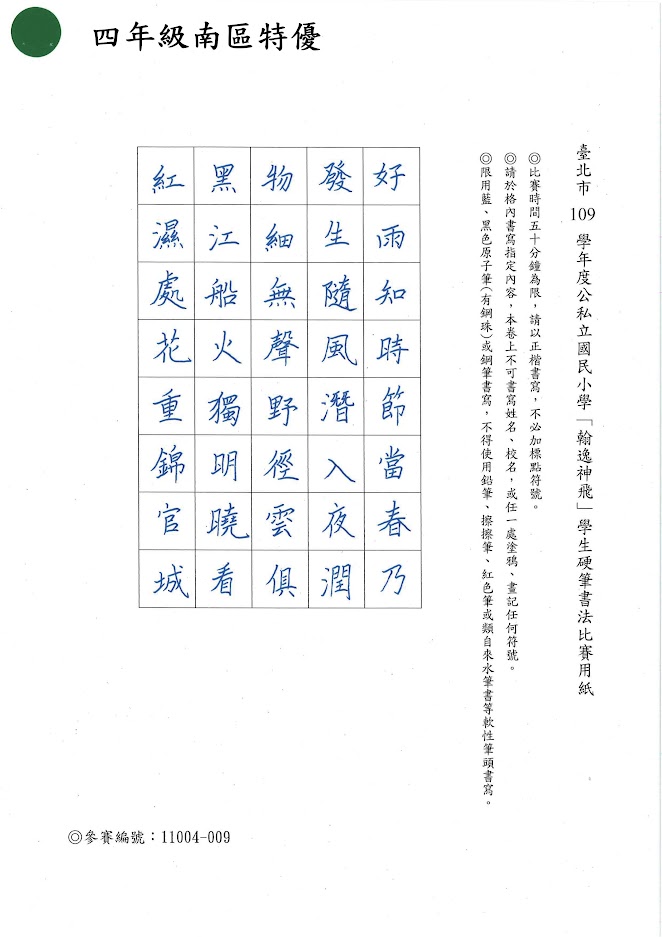 四年級南區特優
臺北市109學年度公私立國民小學「翰逸神飛」學生硬筆書法比賽用紙
◎比賽時間五十分鐘為限，請以正楷書寫，不必加標點符號。
◎請於格內書寫指定內容，本卷上不可書寫姓名、校名，或任一處塗鴉、畫記任何符號。
◎限用藍、黑色原子筆(有鋼珠)或鋼筆書寫，不得使用鉛筆、擦擦筆、紅色筆或類自來水筆書等軟性筆頭書寫。
好雨知時節當春乃
發生隨風潛入夜潤
物細無聲野徑雲俱
黑江船火獨明曉看
紅濕處花重錦官城
◎參賽編號：11004-009